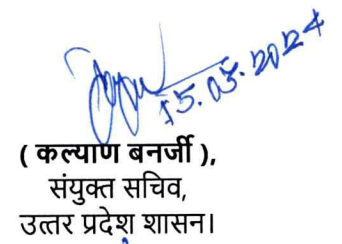 15.03.2024
( कल्याण बनर्जी ),
संयुक्त सचिव,
उत्तर प्रदेश शासन।